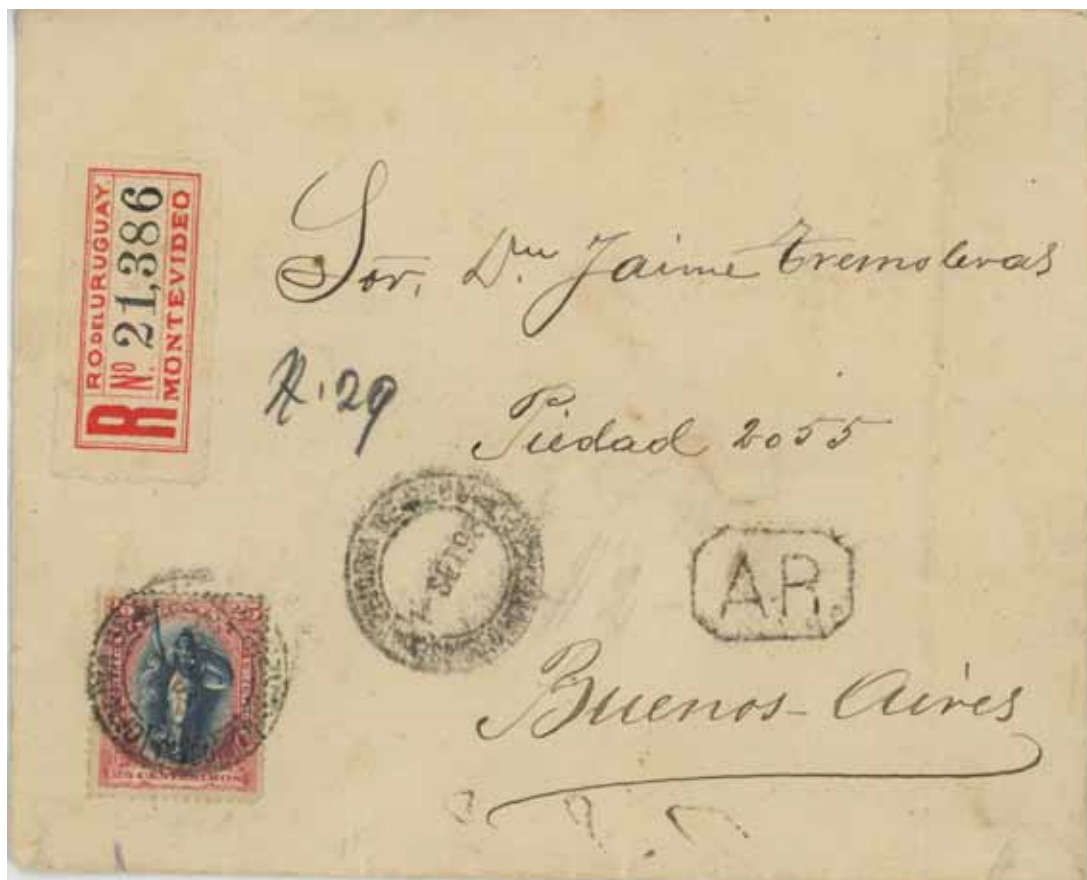 R.O. DEL URUGUAY
R Nº 21,386
MONTEVIDEO
Sor. Dn Jaime Tremoleras
R. 29
Piedad 2055
SET 02
A.R.
Buenos-Aires
25 CENTESIMOS